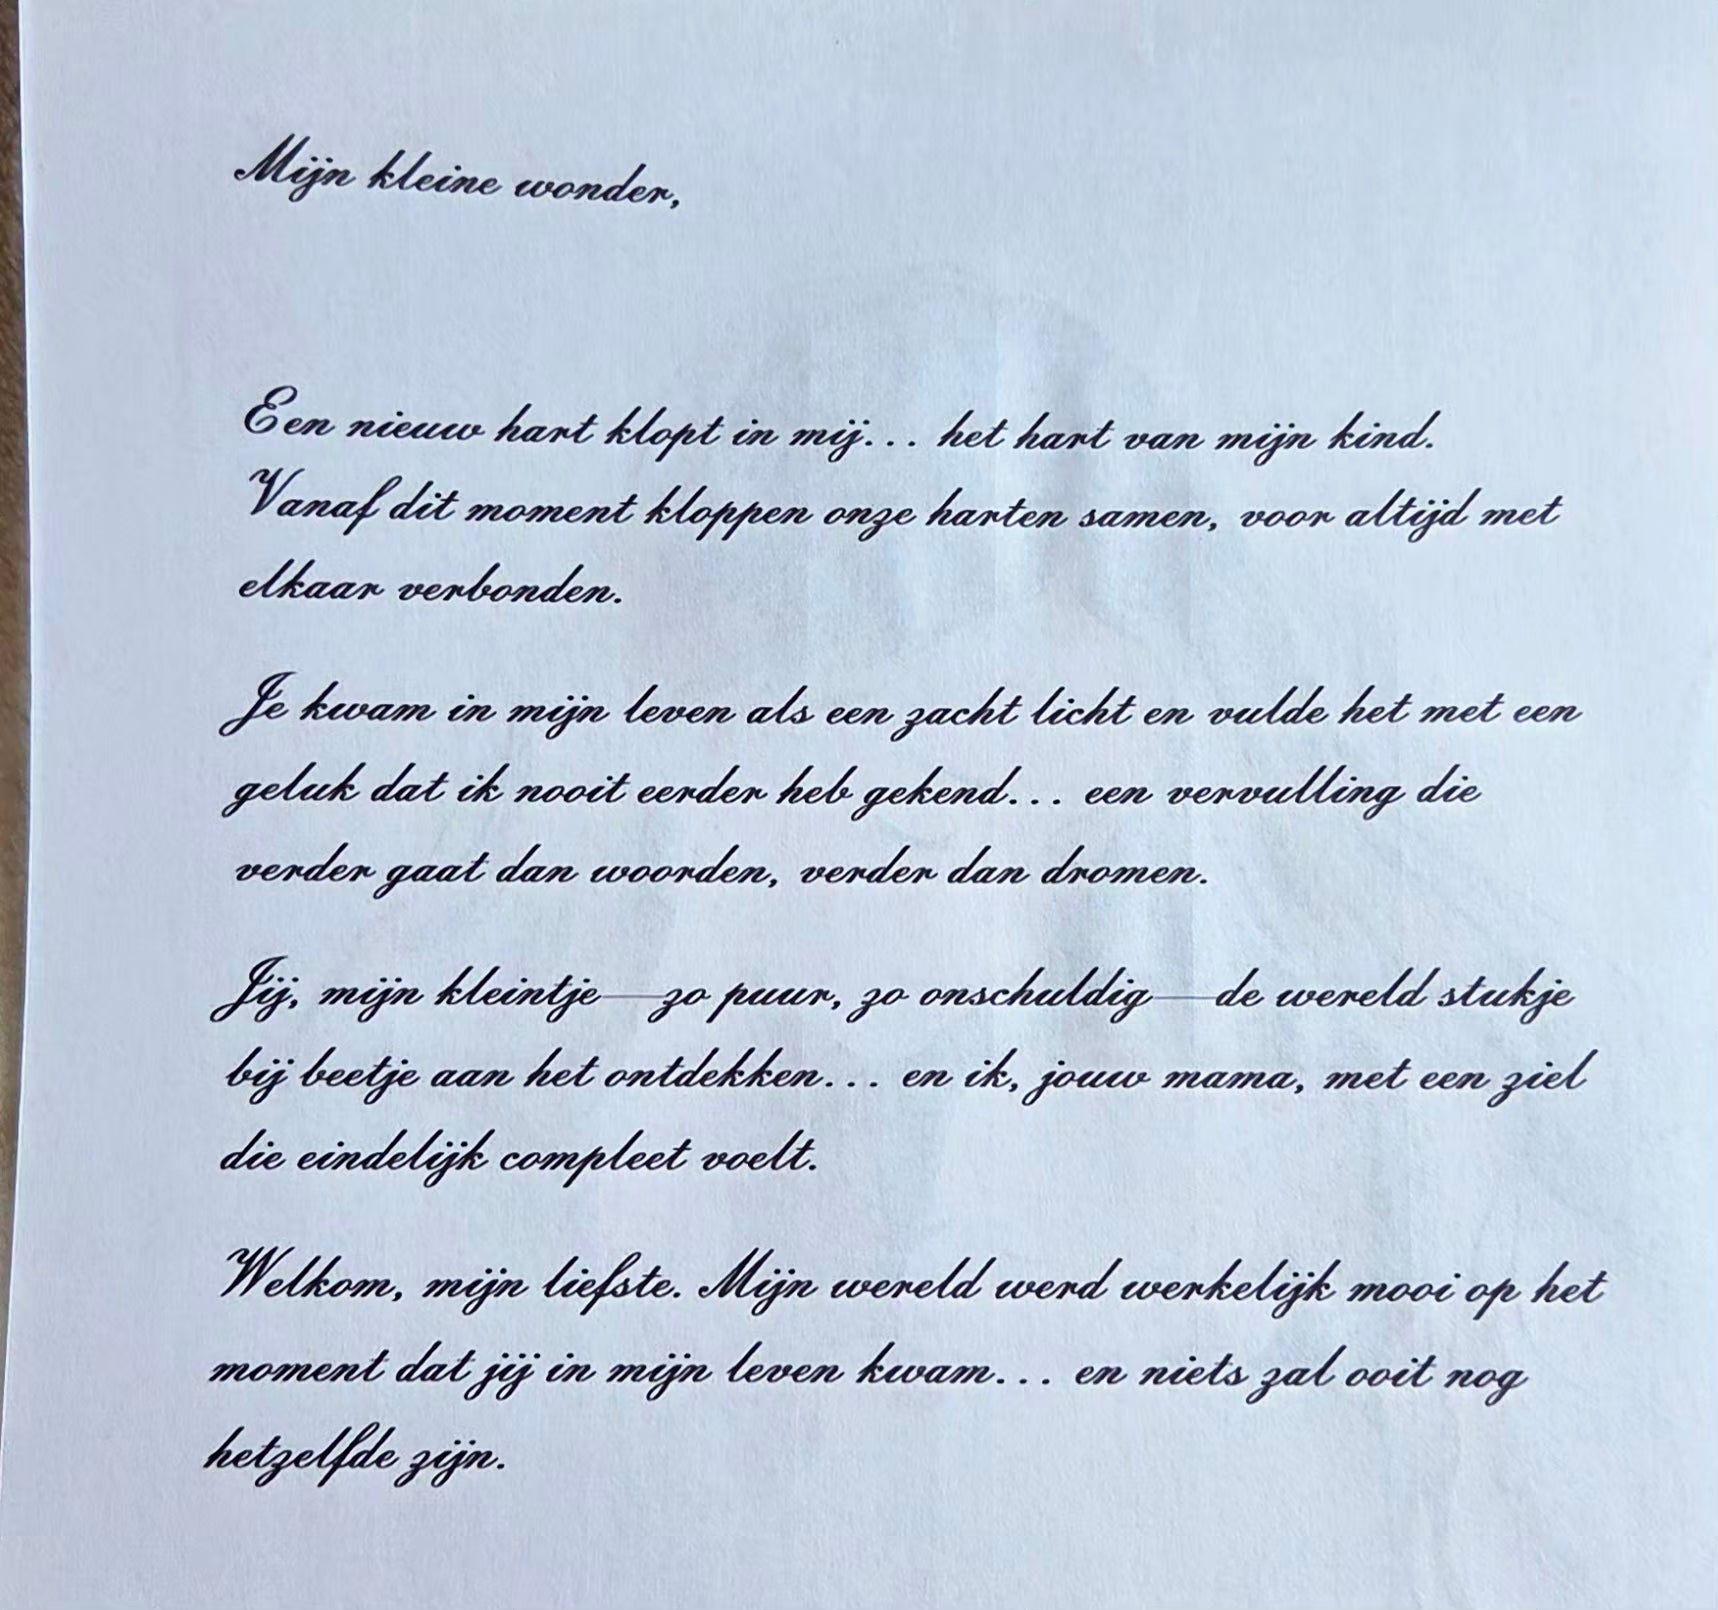 Mijn kleine wonder,
Een nieuw hart klopt in mij... het hart van mijn kind.
Vanaf dit moment kloppen onze harten samen, voor altijd met
elkaar verbonden.
Je kwam in mijn leven als een zacht licht en vulde het met een
geluk dat ik nooit eerder heb gekend... een vervulling die
verder gaat dan woorden, verder dan dromen.
Jij, mijn kleintje—zo puur, zo onschuldig—de wereld stukje
bij beetje aan het ontdekken... en ik, jouw mama, met een ziel
die eindelijk compleet voelt.
Welkom, mijn liefste. Mijn wereld werd werkelijk mooi op het
moment dat jij in mijn leven kwam... en niets zal ooit nog
hetzelfde zijn.